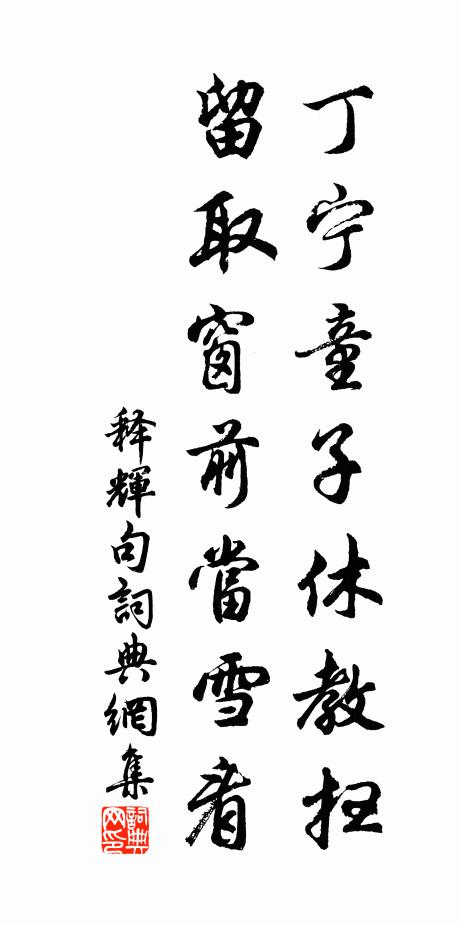 丁宁童子休教扫
留取窗前當雪看
释輝句詞典網集
詞典网印